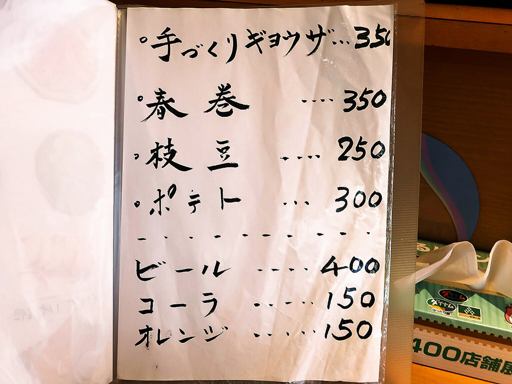 °手づくりギョウザ...350
°春巻 .... 350
°枝豆 .... 250
°ポテト ... 300
ビール .... 400
コーラ .... 150
オレンジ ..... 150
400店舗展